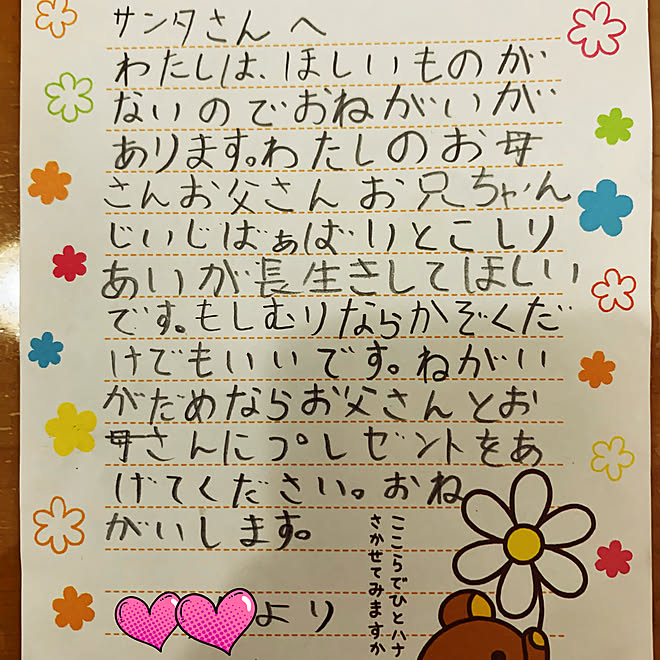 サンタさんへ
わたしは、ほしいものが
ないのでおねがいが
あります。わたしのお母
さんお父さんお兄ちゃん
じいじばぁばいとこしり
あいが長生きしてほしい
です。もしむりならかぞくだ
けでもいいです。ねがい
がだめならお父さんとお
母さんにプレゼントをあ
げてください。おね
がいします。
より
ここらでひとハナ
さかせてみますか